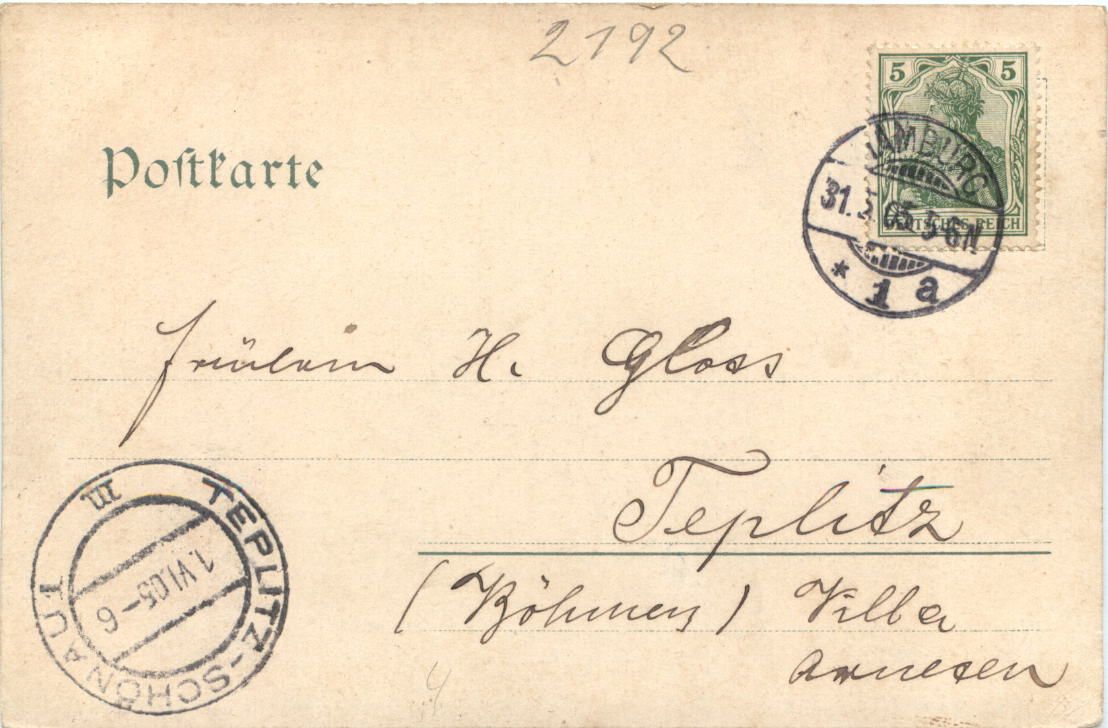 2192
5 5
DEUTSCHES REICH
HAMBURG
31.5.05 5-6N
* 1 a
Postkarte
Fräulein H. Gloss
Teplitz
(Böhmen) Villa
Arnesen
TEPLITZ-SCHÖNAU T
III
1.VI.05-6
4